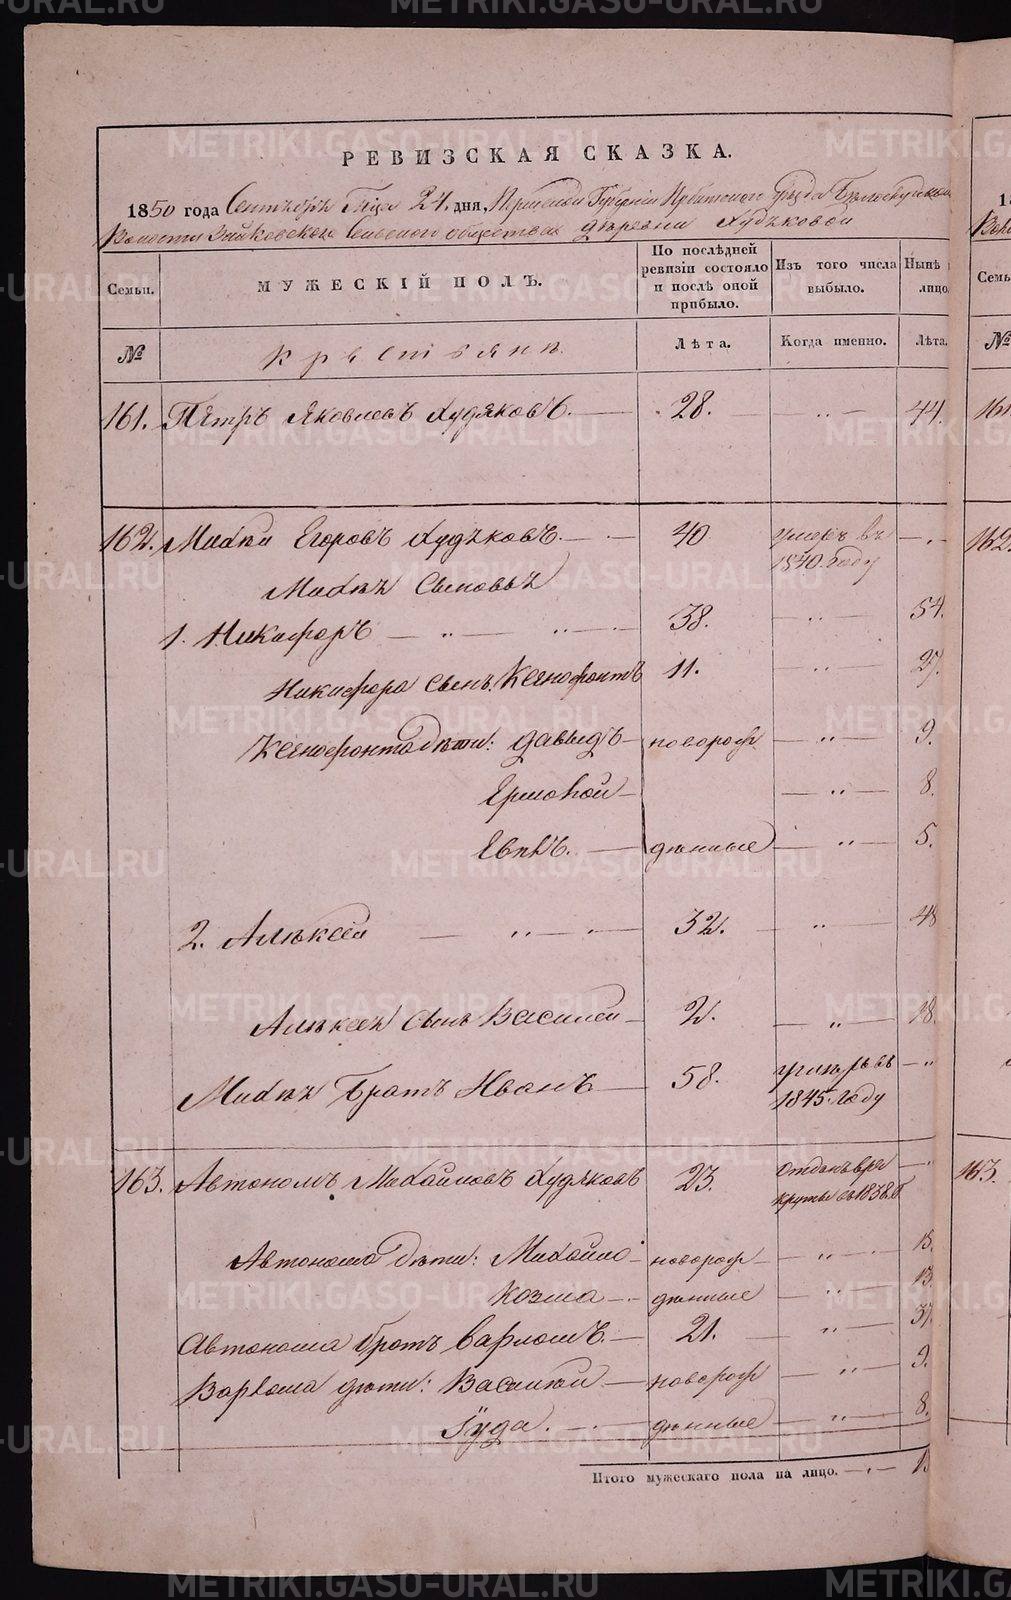 РЕВИЗСКАЯ СКАЗКА.
1850 года Сентября 24. дня, Пермской Губернiи Ирбитского уезда Белослудской
Волости Зайковскаго Сельскаго общества деревни Худяковой
Семьи. МУЖЕСКIЙ ПОЛЪ. По послѣдней ревизiи состояло и послѣ оной прибыло. Изъ того числа выбыло. Нынѣ лицо.
№ Крестьяне. Лѣта. Когда именно. Лѣта.
161. Петръ Яковлевъ Худяковъ. 28. 44.
162. Михей Егоровъ Худяковъ. 40 умеръ въ
1840. году
Михея Сыновья
1. Никифоръ 38. 54.
Никифора сынъ Ксенофонтъ 11. 27.
Ксенофонта дети: Давыдъ новорож 9.
Ермолой 8.
Евпл. денные 5.
2. Алексей 32. 48
Алексея сынъ Василей 2. 18.
Михея братъ Иванъ 58. умеръ въ
1845. году
163. Автономъ Михайловъ Худяковъ 23. отданъ в ре
круты въ 1838. г.
Автонома дети: Михайло новорож 15.
Козма денные 13.
Автонома братъ Варломъ. 21. 37.
Варлома дети: Василей новорож 9.
Iуда. денные 8.
Итого мужескаго пола на лицо.
METRIKI.GASO-URAL.RU